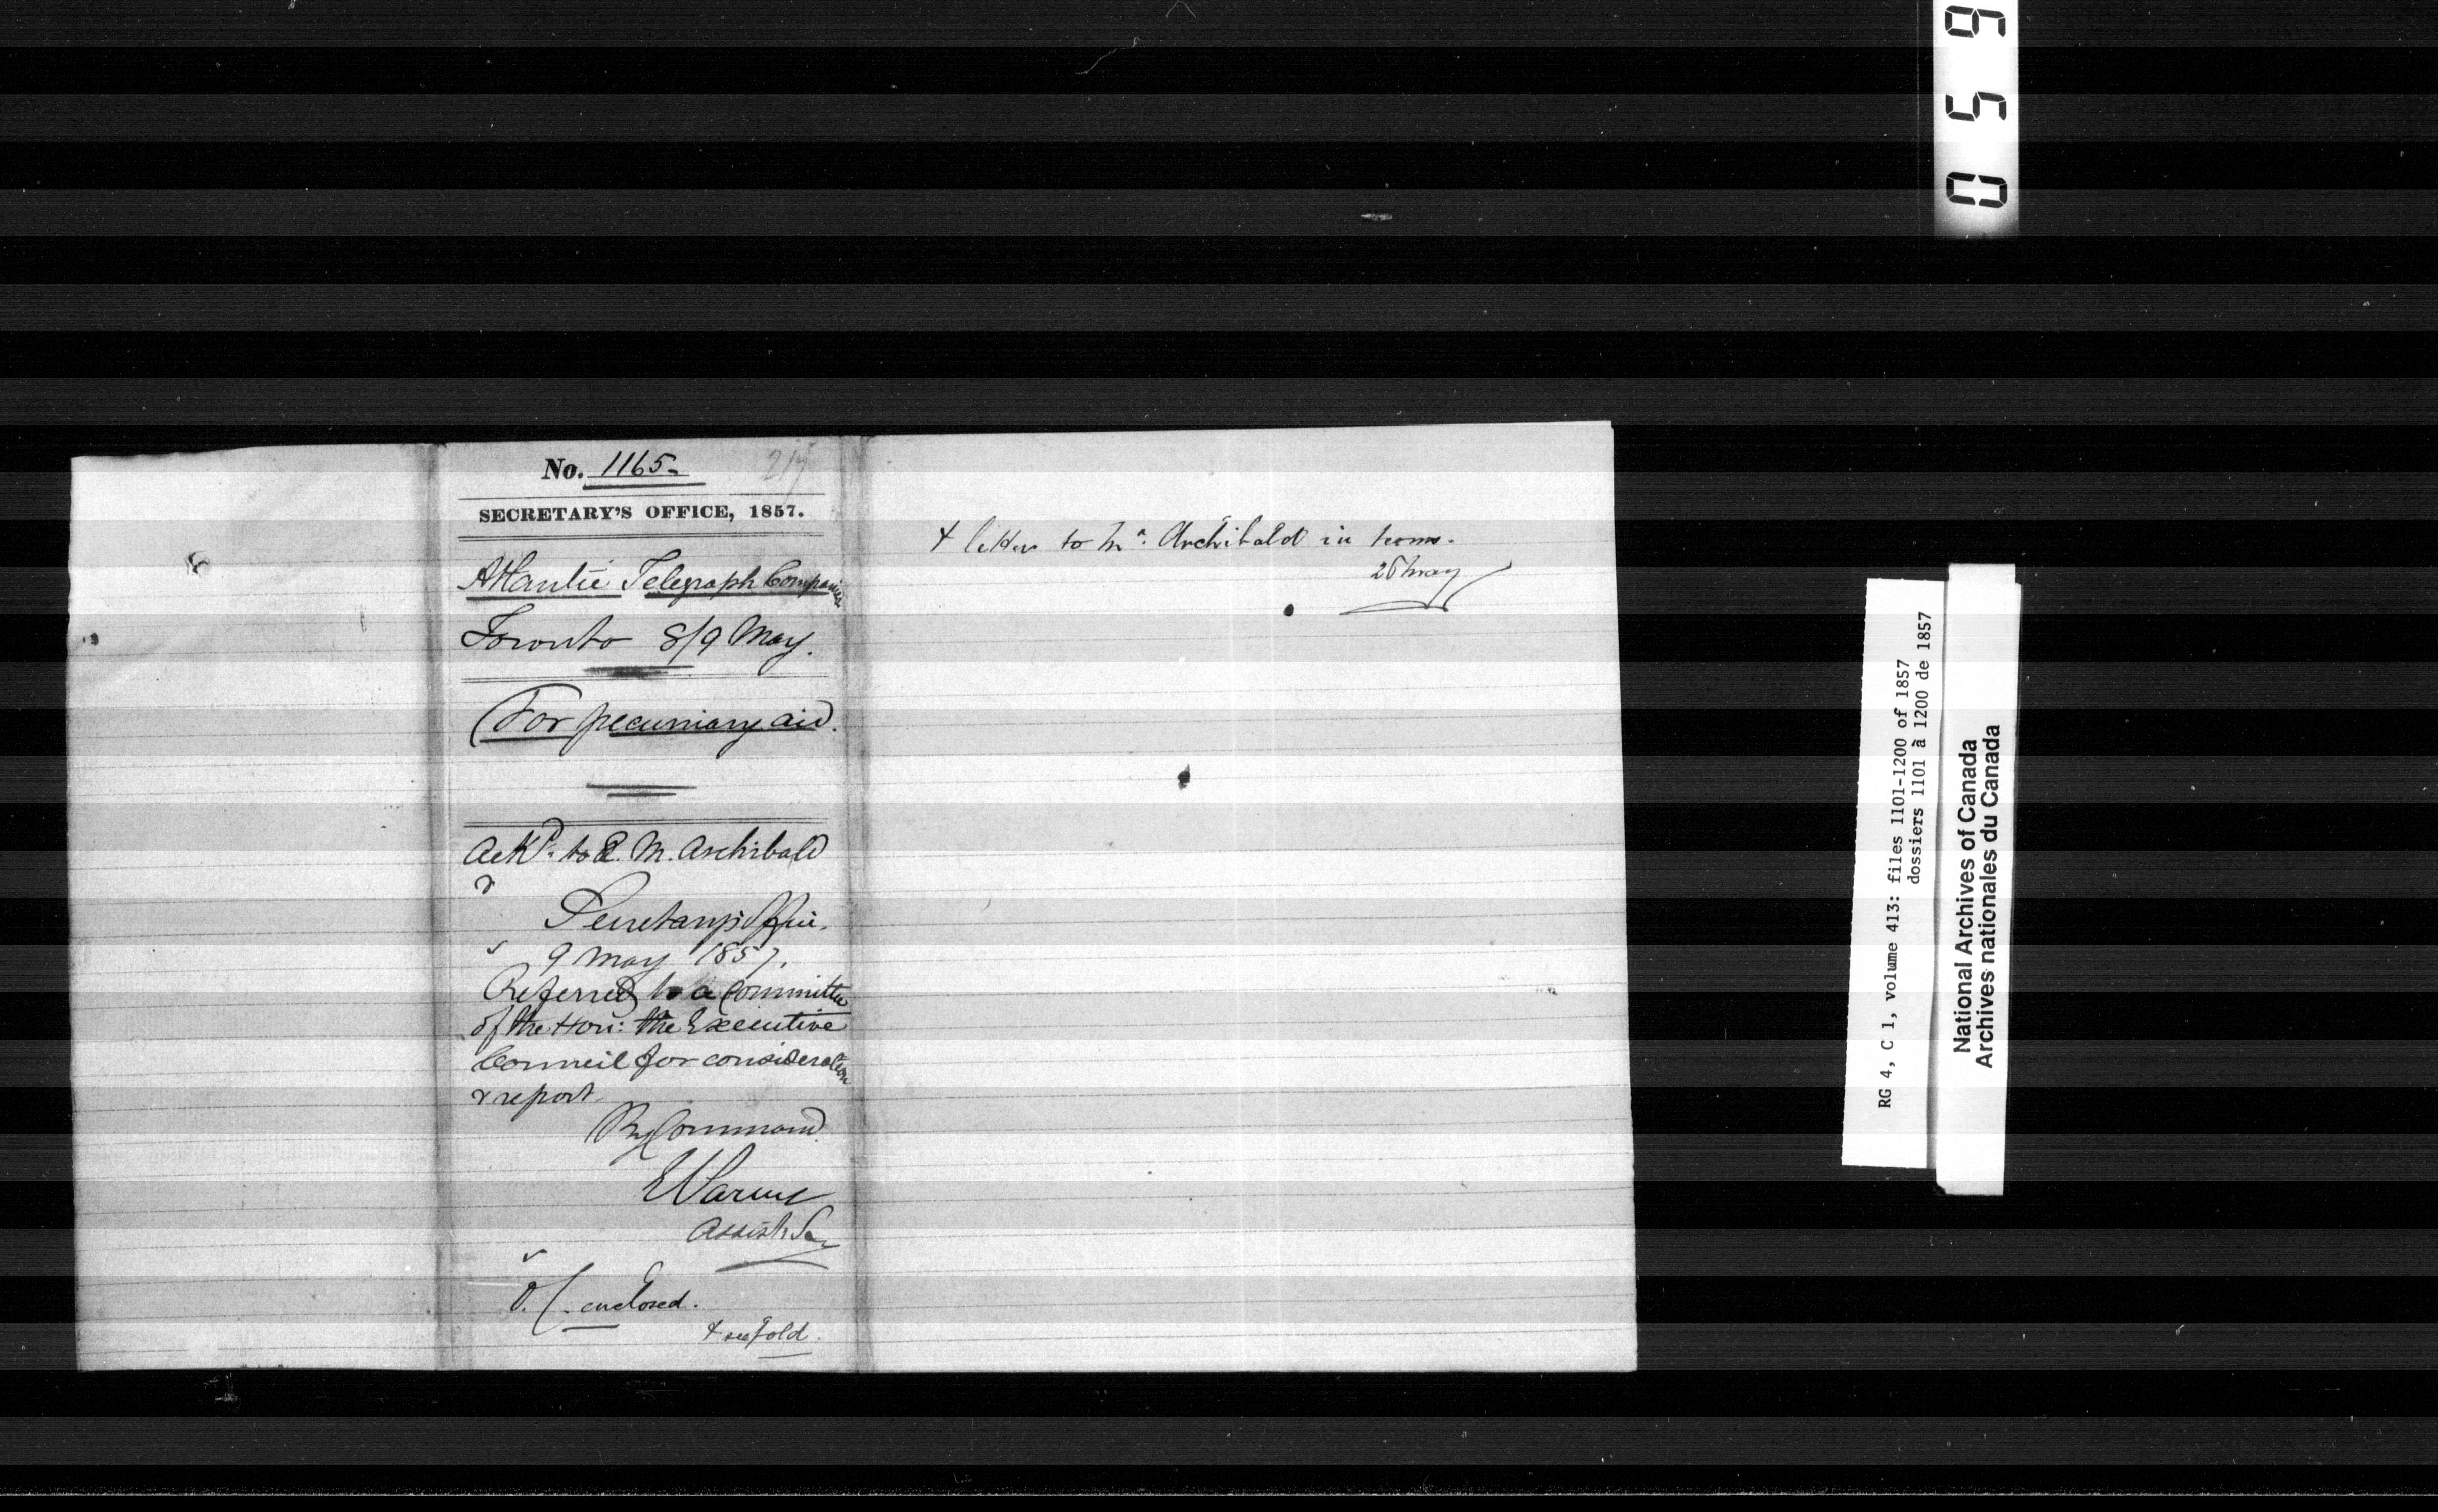 No. 1165.
217
SECRETARY'S OFFICE, 1857.
Atlantic Telegraph Companies
Toronto 8/9 May.
(For pecuniary aid.
Ackd. to E. M. Archibald
&
Secretary's Office.
9 May 1857.
Referred to a Committee
of the Hon: the Executive
Council for consideration
& report
By Command.
E Parent
Assist. Sec
O. C. enclosed.
+ see fold.
+ letter to Mr. Archibald in
26 May
059
RG 4, C 1, volume 413: files 1101-1200 of 1857
dossiers 1101 à 1200 de 1857
National Archives of Canada
Archives nationales du Canada